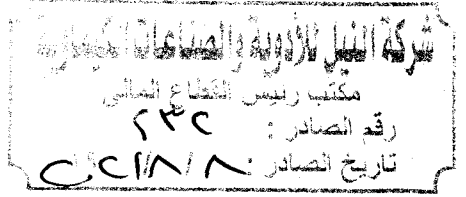 شركة النيل للأدوية والصناعات الكيماوية
مكتب رئيس القطاع المالى
رقم الصادر : ٢٣٢
تاريخ الصادر : ٨ / ٨ / ٢٠٢٢